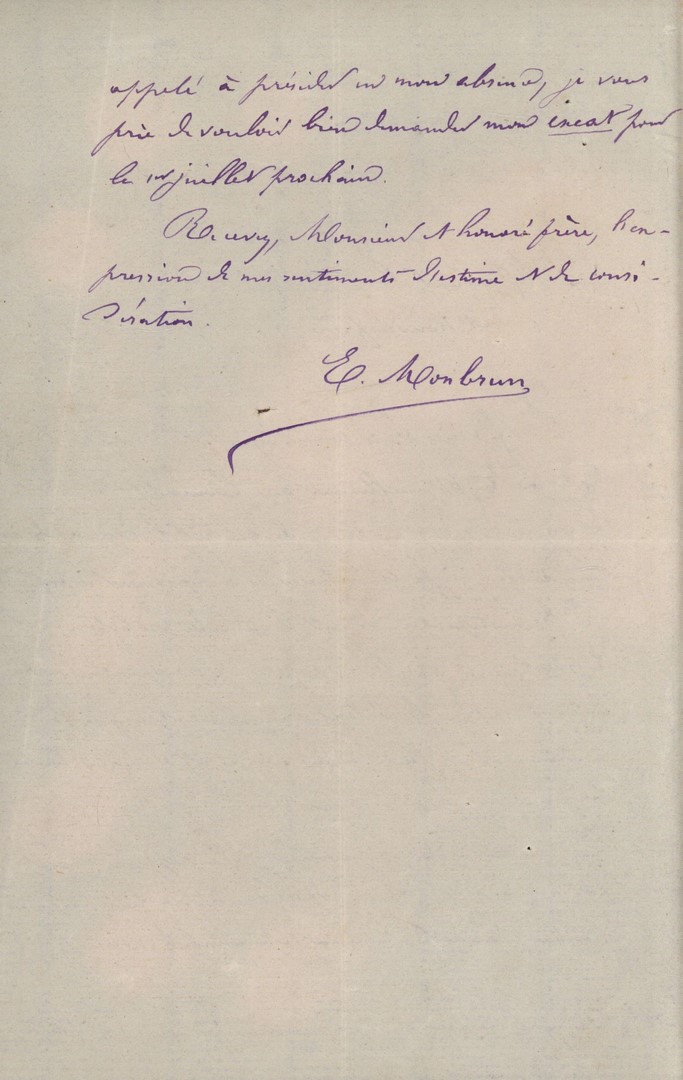 appelé à présider en mon absence, je vous
prie de vouloir bien demander mon exeat pour
le 1er juillet prochain.
Recevez, Monsieur et honoré frère, l'ex-
pression de mes sentiments d'estime et de consi-
dération.
E. Monbrun